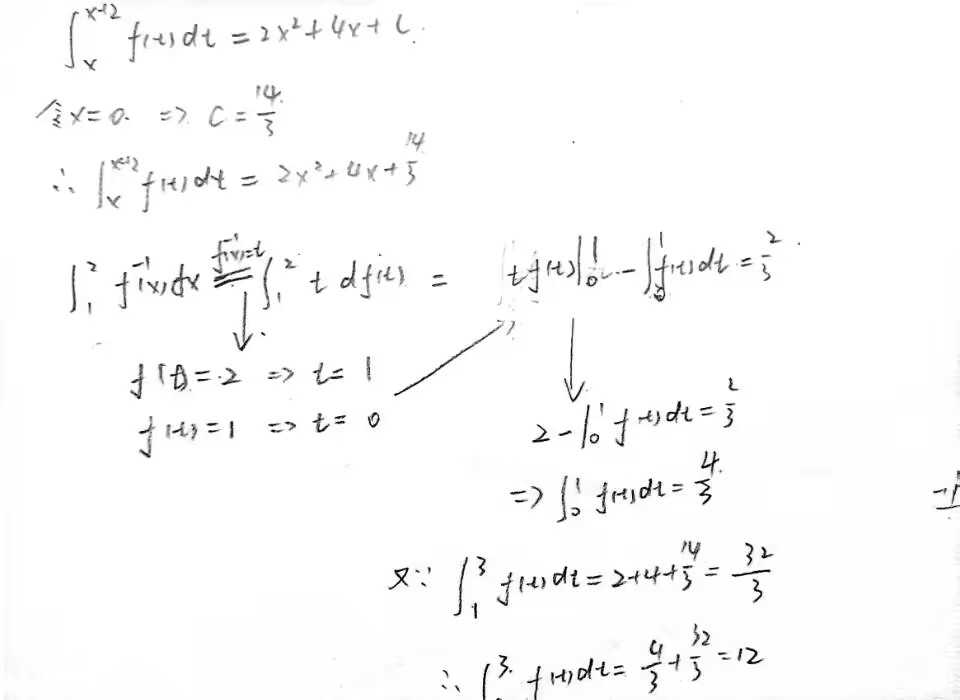 ∫ₓˣ⁺² f(t)dt = 2x² + 4x + C.
令x=0. => C = 14/3
∴ ∫ₓˣ⁺² f(t)dt = 2x² + 4x + 14/3
∫₁² f⁻¹(x)dx f⁻¹(x)=t ∫₁² t df(t) = tf(t)|₀¹ - ∫₀¹ f(t)dt = 2/3.
f(t)=2 => t=1
f(t)=1 => t=0
2-∫₀¹ f(t)dt = 2/3
=> ∫₀¹ f(t)dt = 4/3
又∵ ∫₁³ f(t)dt = 2+4+14/3 = 32/3
∴ ∫³ f(t)dt = 4/3 + 32/3 = 12